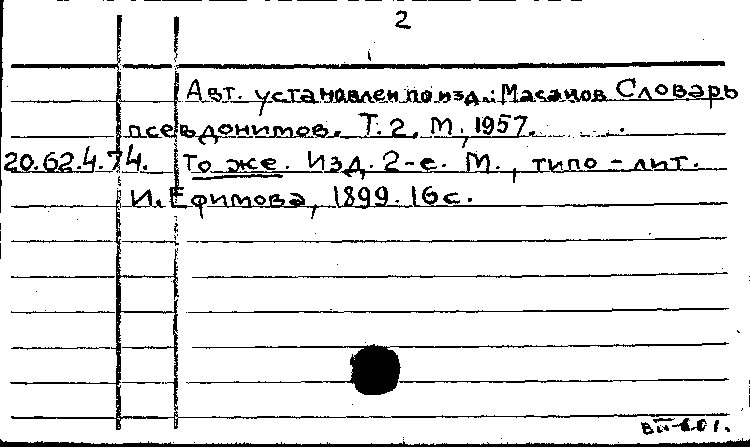 2
Авт. установлен по изд.: Масанов Словарь
псевдонимов. Т. 2. М., 1957.
20.62.4.74. То же. Изд. 2-е. М., типо-лит.
И. Ефимова, 1899. 16 с.